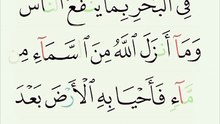 فِي ٱلۡبَحۡرِ بِمَا يَنفَعُ ٱلنَّاسَ
وَمَآ أَنزَلَ ٱللَّهُ مِنَ ٱلسَّمَآءِ مِن
مَّآءٖ فَأَحۡيَا بِهِ ٱلۡأَرۡضَ بَعۡدَ